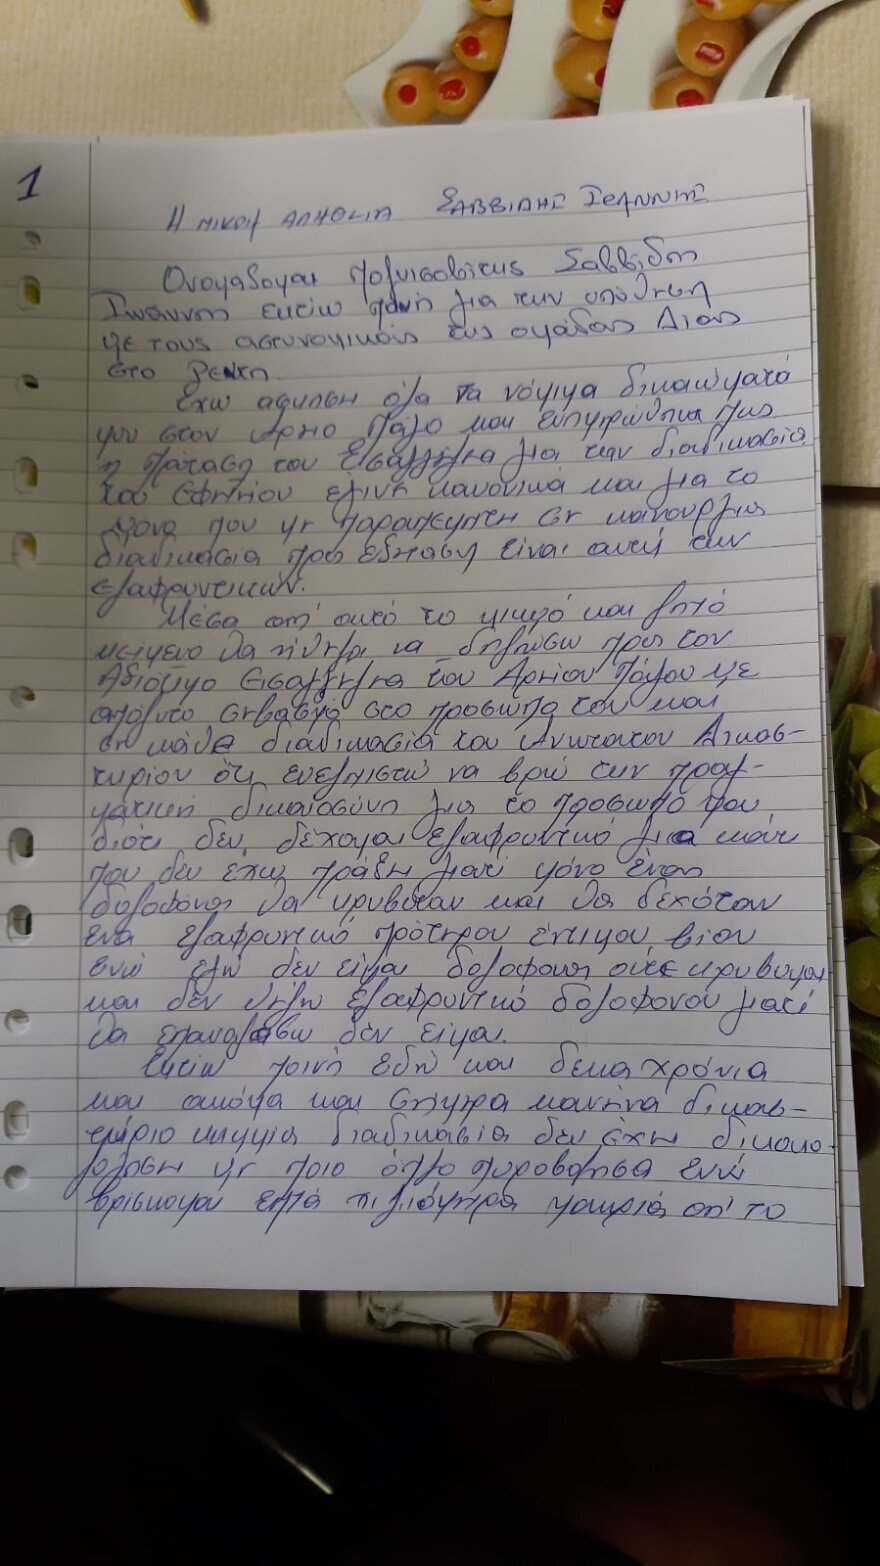 1
Η ΜΙΚΡΗ ΑΛΗΘΕΙΑ ΣΑΒΒΙΔΗΣ ΙΩΑΝΝΗΣ
Ονομάζομαι Σαββίδη
Ιωάννης εκτίω ποινή για την υπόθεση
με τους αστυνομικούς της ομάδας Δίας
στο Ρέντη.
Έχω όλα τα νόμιμα δικαιώματα
μου στον Άριο Πάγο και πως
η πρόταση του Εισαγγελέα για την διαδικασία
του Εφετείου έγινε κανονικά και για το
μόνο που με παραπέμπτει σε καινούργια
διαδικασία προς εξέταση είναι αυτή των
ελαφρυντικών.
Μέσα απ' αυτό το μικρό και λιτό
κείμενο θα ήθελα να δηλώσω προς τον
Αξιότιμο Εισαγγελέα του Αρείου Πάγου με
απόλυτο σεβασμό στο πρόσωπο του και
σε κάθε διαδικασία του Ανωτάτου Δικασ-
τηρίου ότι ευελπιστώ να βρω την πραγ-
ματική δικαιοσύνη για το πρόσωπό μου
διότι δεν δέχομαι ελαφρυντικό για κάτι
που δεν έχω πράξη γιατί μόνο ένας
δολοφόνος θα κρυβόταν και θα δεχόταν
ένα ελαφρυντικό πρότερου έντιμου βίου
ενώ εγώ δεν είμαι δολοφόνος ούτε κρύβομαι
και δεν θέλω ελαφρυντικό δολοφόνου γιατί
θα επαναλάβω δεν είμαι.
Εκτίω ποινή εδώ και δεκα χρόνια
και ακόμα και σήμερα κανένα δικασ-
τήριο καμμία διαδικασία δεν έχει δικαιο-
λογήσει με ποιο όπλο πυροβόλησα ενώ
βρίσκομαι επτά χιλιόμετρα μακριά απ' το